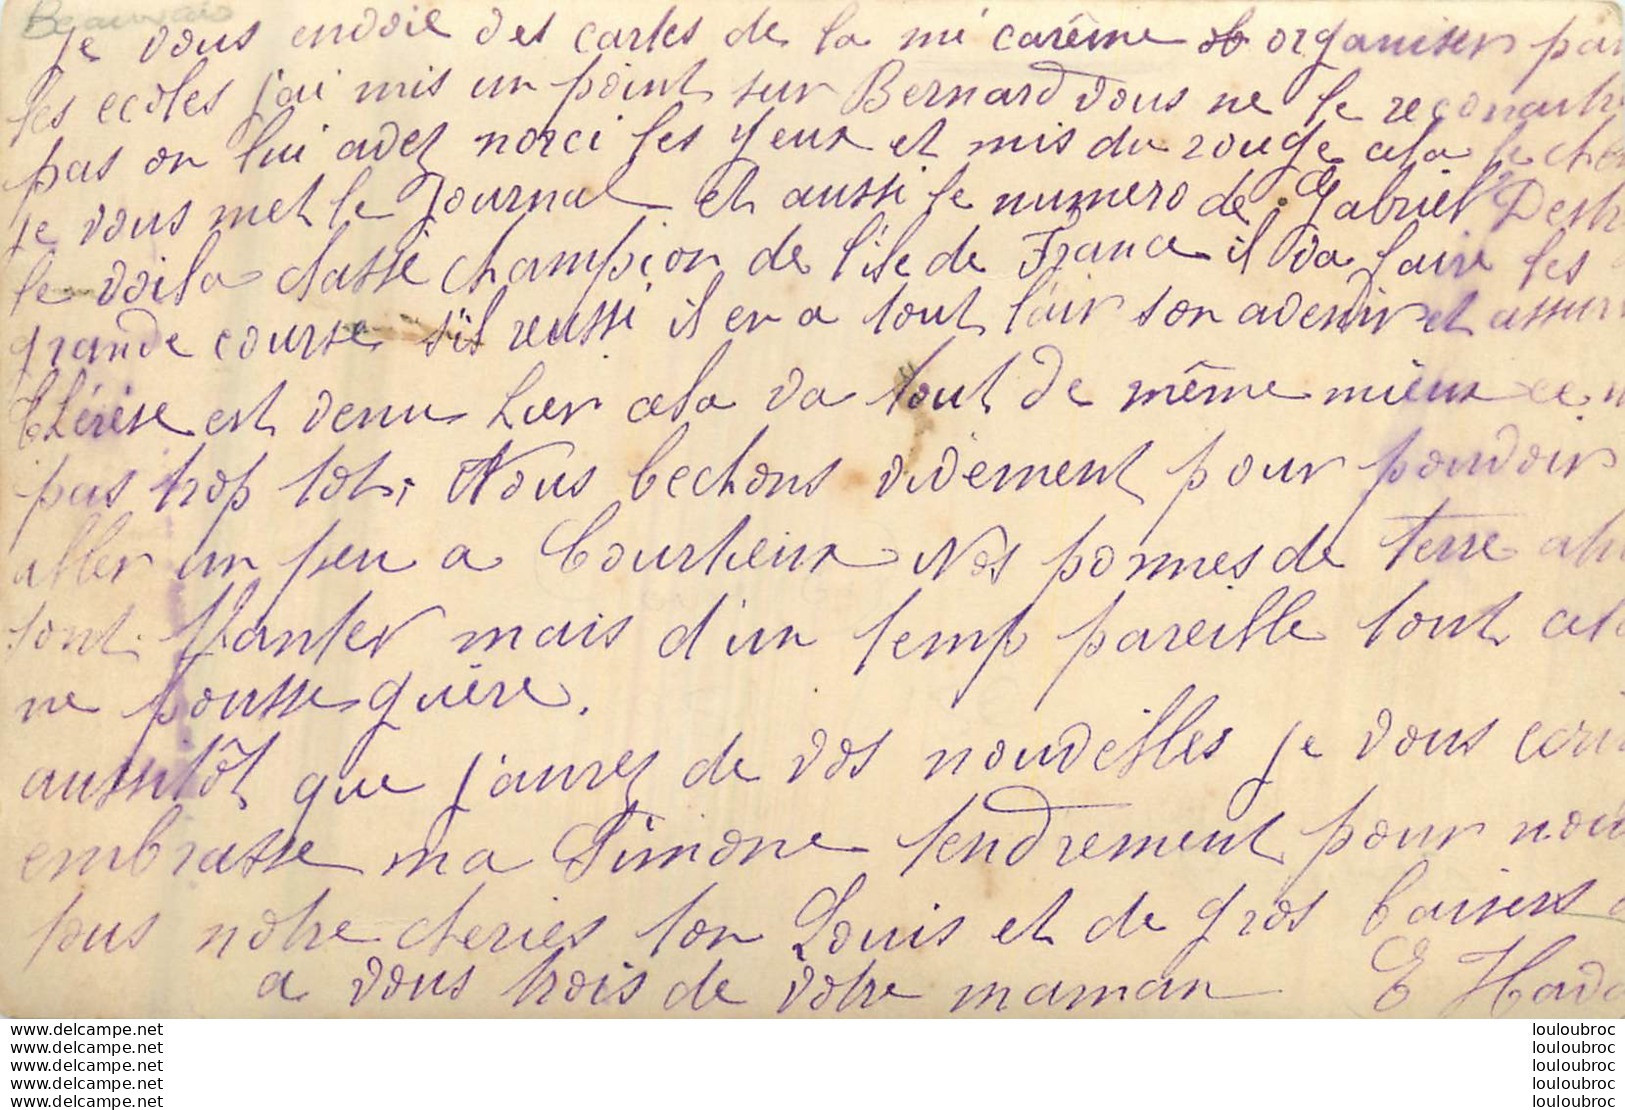 Beauvais
je vous envoie des cartes de la mi carême organiser par
les ecoles j'ai mis un point sur Bernard vous ne le reconaitre
pas on lui avez norci les yeux et mis du rouge cela le
je vous met le Journal et aussi le numero de Gabriel
le voila classé champion de l'ile de France il va faire les
grande course s'il reussi il en a tout l'air son avenir et assur
Thérèse est venu hier cela va tout de même mieux ce n
pas trop tot, Nous bechons vivement pour pouvoir
aller un peu a Nos pommes de terre
sont planter mais d'un temp pareille tout cela
ne pousse guère.
aussitôt que j'aurez de vos nouvelles je vous ecri
embrasse ma Simone tendrement pour nous
pus notre cheries ton Louis et de gros baisers
a vous trois de votre maman E
www.delcampe.net louloubroc
www.delcampe.net louloubroc
www.delcampe.net louloubroc
www.delcampe.net louloubroc
www.delcampe.net louloubroc